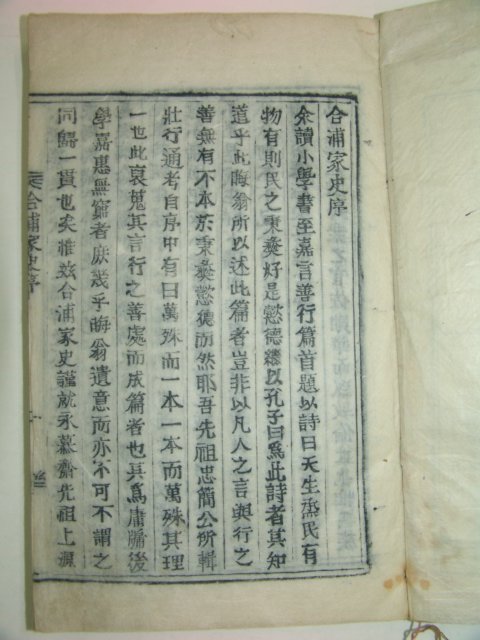 合浦家史序
余讀小學書至嘉言善行篇首題以詩曰天生烝民有
物有則民之秉彝好是懿德繼以孔子曰爲此詩者其知
道乎此晦翁所以述此篇者豈非以凡人之言與行之
善無有不本於秉彝懿德而然耶吾先祖忠簡公所輯
壯行通考自序中有曰萬殊而一本一本而萬殊其理
一也此裒蒐其言行之善處而成篇者也其爲庸牖後
學嘉惠無窮者庶幾乎晦翁遺意而亦不可不謂之
同歸一貫也矣惟玆合浦家史謹就永慕齋先祖上溯
合浦家史序